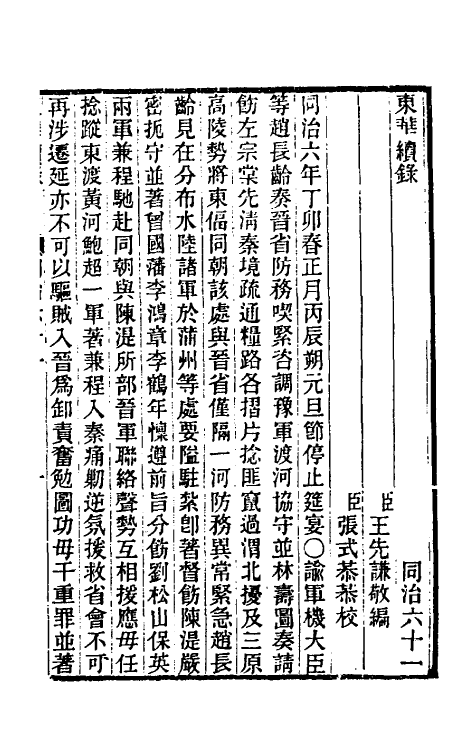 東華續錄
同治六十一
臣王先謙敬編
臣張式恭恭校
同治六年丁卯春正月丙辰朔元旦節停止筵宴○諭軍機大臣
等趙長齡奏晉省防務喫緊咨調豫軍渡河協守並林壽圖奏請
飭左宗棠先淸秦境疏通糧路各摺片捻匪竄過渭北擾及三原
高陵勢將東偪同朝該處與晉省僅隔一河防務異常緊急趙長
齡見在分布水陸諸軍於蒲州等處要隘駐紮卽著督飭陳湜嚴
密扼守並著曾國藩李鴻章李鶴年懍遵前旨分飭劉松山保英
兩軍兼程馳赴同朝與陳湜所部晉軍聯絡聲勢互相援應毋任
捻蹤東渡黃河鮑超一軍著兼程入秦痛剿逆氛援救省會不可
再涉遷延亦不可以驅賊入晉爲卸責奮勉圖功毋干重罪並著